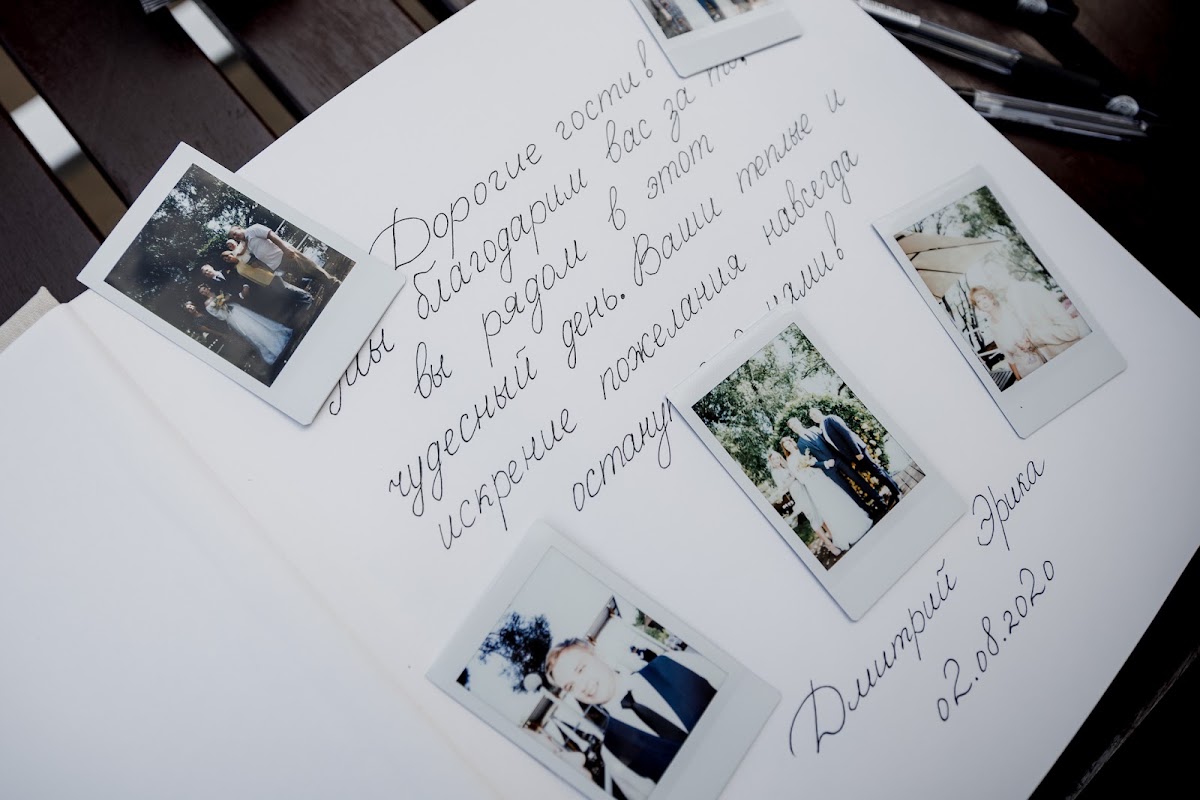 Дорогие гости!
Мы благодарим вас за то,
вы рядом в этот
чудесный день. Ваши теплые и
искрение пожелания навсегда
нами!
Дмитрий Эрика
02.08.2020